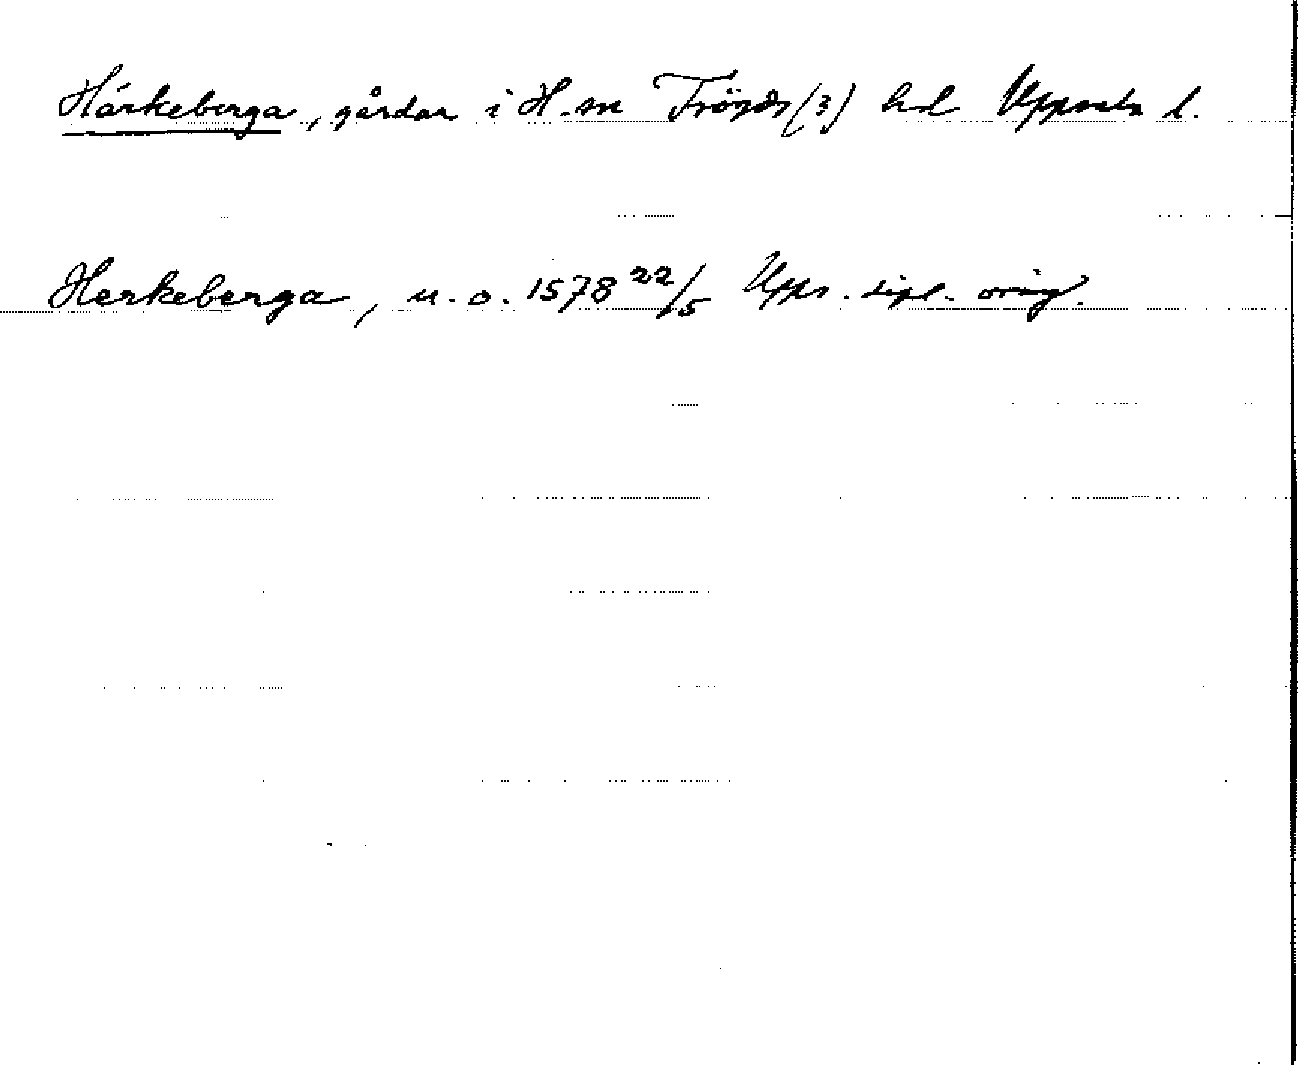 Härkeberga, gårdar i H-sn Trögds (3) hd Uppsala l.
Herkeberga, u. o. 1578 22/5 Upps. dipl. orig.